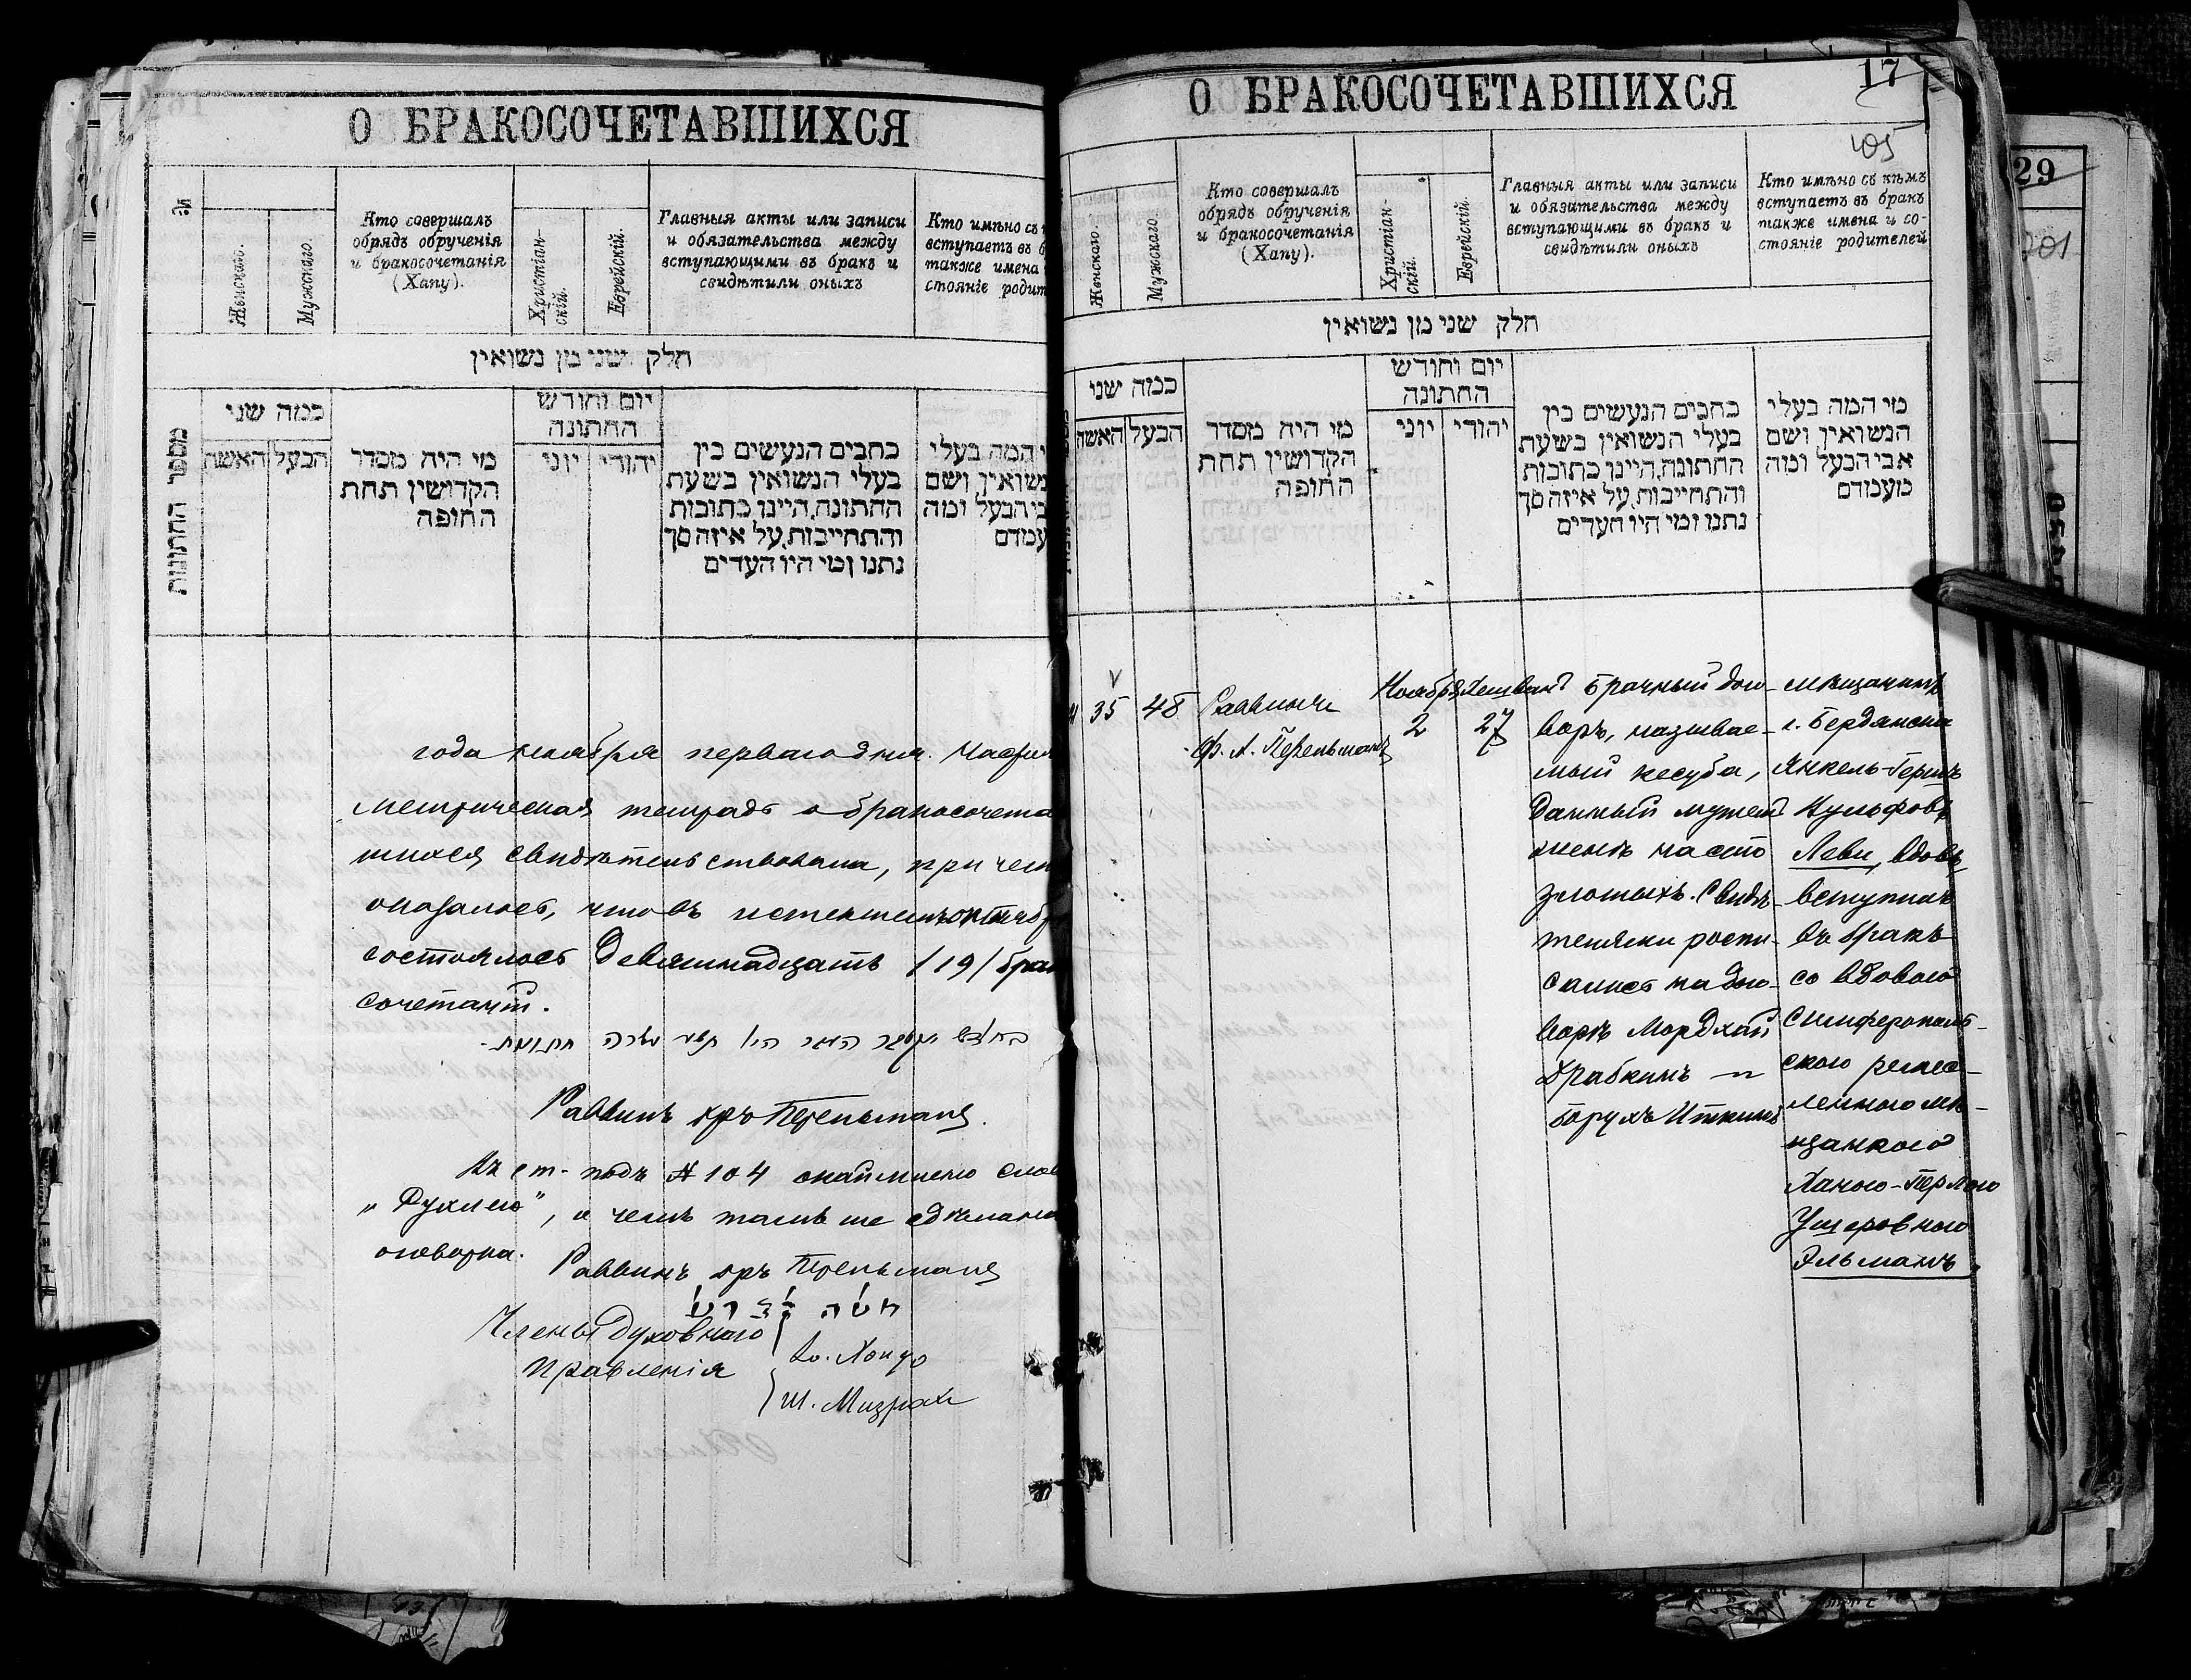 О БРАКОСОЧЕТАВШИХСЯ
№
Женскаго.
Мужскаго.
Кто совершалъ
обрядъ обрученія
и бракосочетанія
(Хапу).
Христіан-
скій.
Еврейскій.
Главныя акты или записи
и обязательства между
вступающими въ бракъ и
свидѣтили оныхъ
Кто имѣно съ
вступаетъ въ б
также имена
стояніе родит
חלק שני מן נשואין
מספר החתונות
כמה שני
האשה
הבעל
מי היה מסדר
הקדושין תחת
החופה
יום וחודש
החתונה
יוני
יהודי
כתבים הנעשים בין
בעלי הנשואין בשעת
החתונה, היינו כתובות
והתחייבות, על איזה סך
נתנו ומי היו העדים
י המה בעלי
נשואין ושם
בי הבעל ומה
עמדם
года ноября перваго дня. Настоя
метрическая тетрадь о бракосочета
шихся свидѣтельствована, при чем
оказалось, что въ истекшемъ октябр
состоялось девятнадцать /19/ брак
сочетаній.
Раввинъ дръ Перельманъ.
Въ ст. подъ № 104 окаймлено слов
о чемъ тамъ же сдѣлана
оговорка.
Раввинъ дръ Перельманъ
Члены духовнаго
правленія
Ш. Мизрахи
О БРАКОСОЧЕТАВШИХСЯ
17
405
Женскаго.
Мужскаго.
Кто совершалъ
обрядъ обрученія
и бракосочетанія
(Хапу).
Христіан-
скій.
Еврейскій.
Главныя акты или записи
и обязательства между
вступающими въ бракъ и
свидѣтили оныхъ
Кто имѣно съ кѣмъ
вступаетъ въ бракъ
также имена и со-
стояніе родителей
חלק שני מן נשואין
כמה שני
האשה
הבעל
מי היה מסדר
הקדושין תחת
החופה
יום וחודש
החתונה
יוני
יהודי
כתבים הנעשים בין
בעלי הנשואין בשעת
החתונה, היינו כתובות
והתחייבות, על איזה סך
נתנו ומי היו העדים
מי המה בעלי
הנשואין ושם
אבי הבעל ומה
מעמדם
35
48
Раввинъ
Ф. Л. Перельманъ
Ноября
2
Хешванъ
27
Брачный дого-
воръ, называе-
мый кесуба,
данный мужемъ
женѣ на сто
злотыхъ. Свидѣ-
телями роспи-
сались на дого-
ворѣ Мордхай
Драбкинъ и
Борухъ Иткинъ
мѣщанинъ
г. Бердянска
Янкель-Гершъ
Нульфовъ
Леви, вдовъ
вступилъ
въ бракъ
со вдовою
Симферополь-
скою ремес-
ленною мѣ-
щанкою
Ханою-Перлою
Ушеровною
Эльманъ.
29